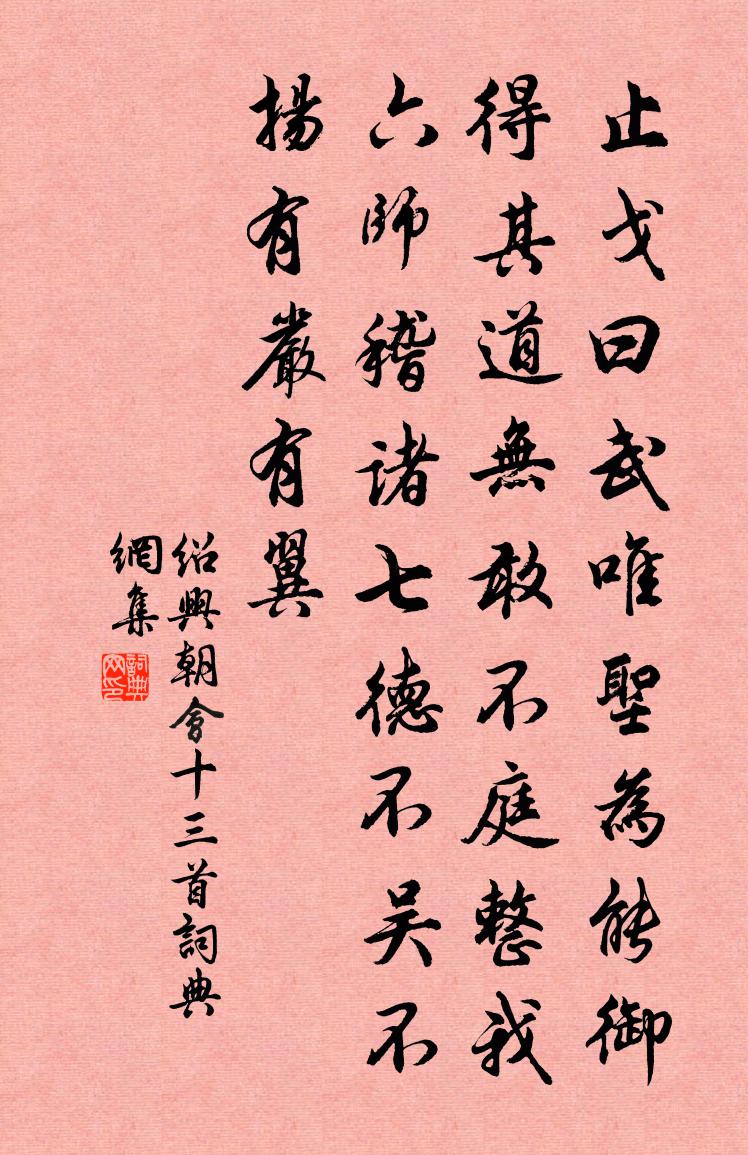 止戈曰武唯聖為能御
得其道無敢不庭整我
六師稽諸七德不吴不
揚有嚴有翼
紹興朝會十三首詞典
網集
詞典
网印